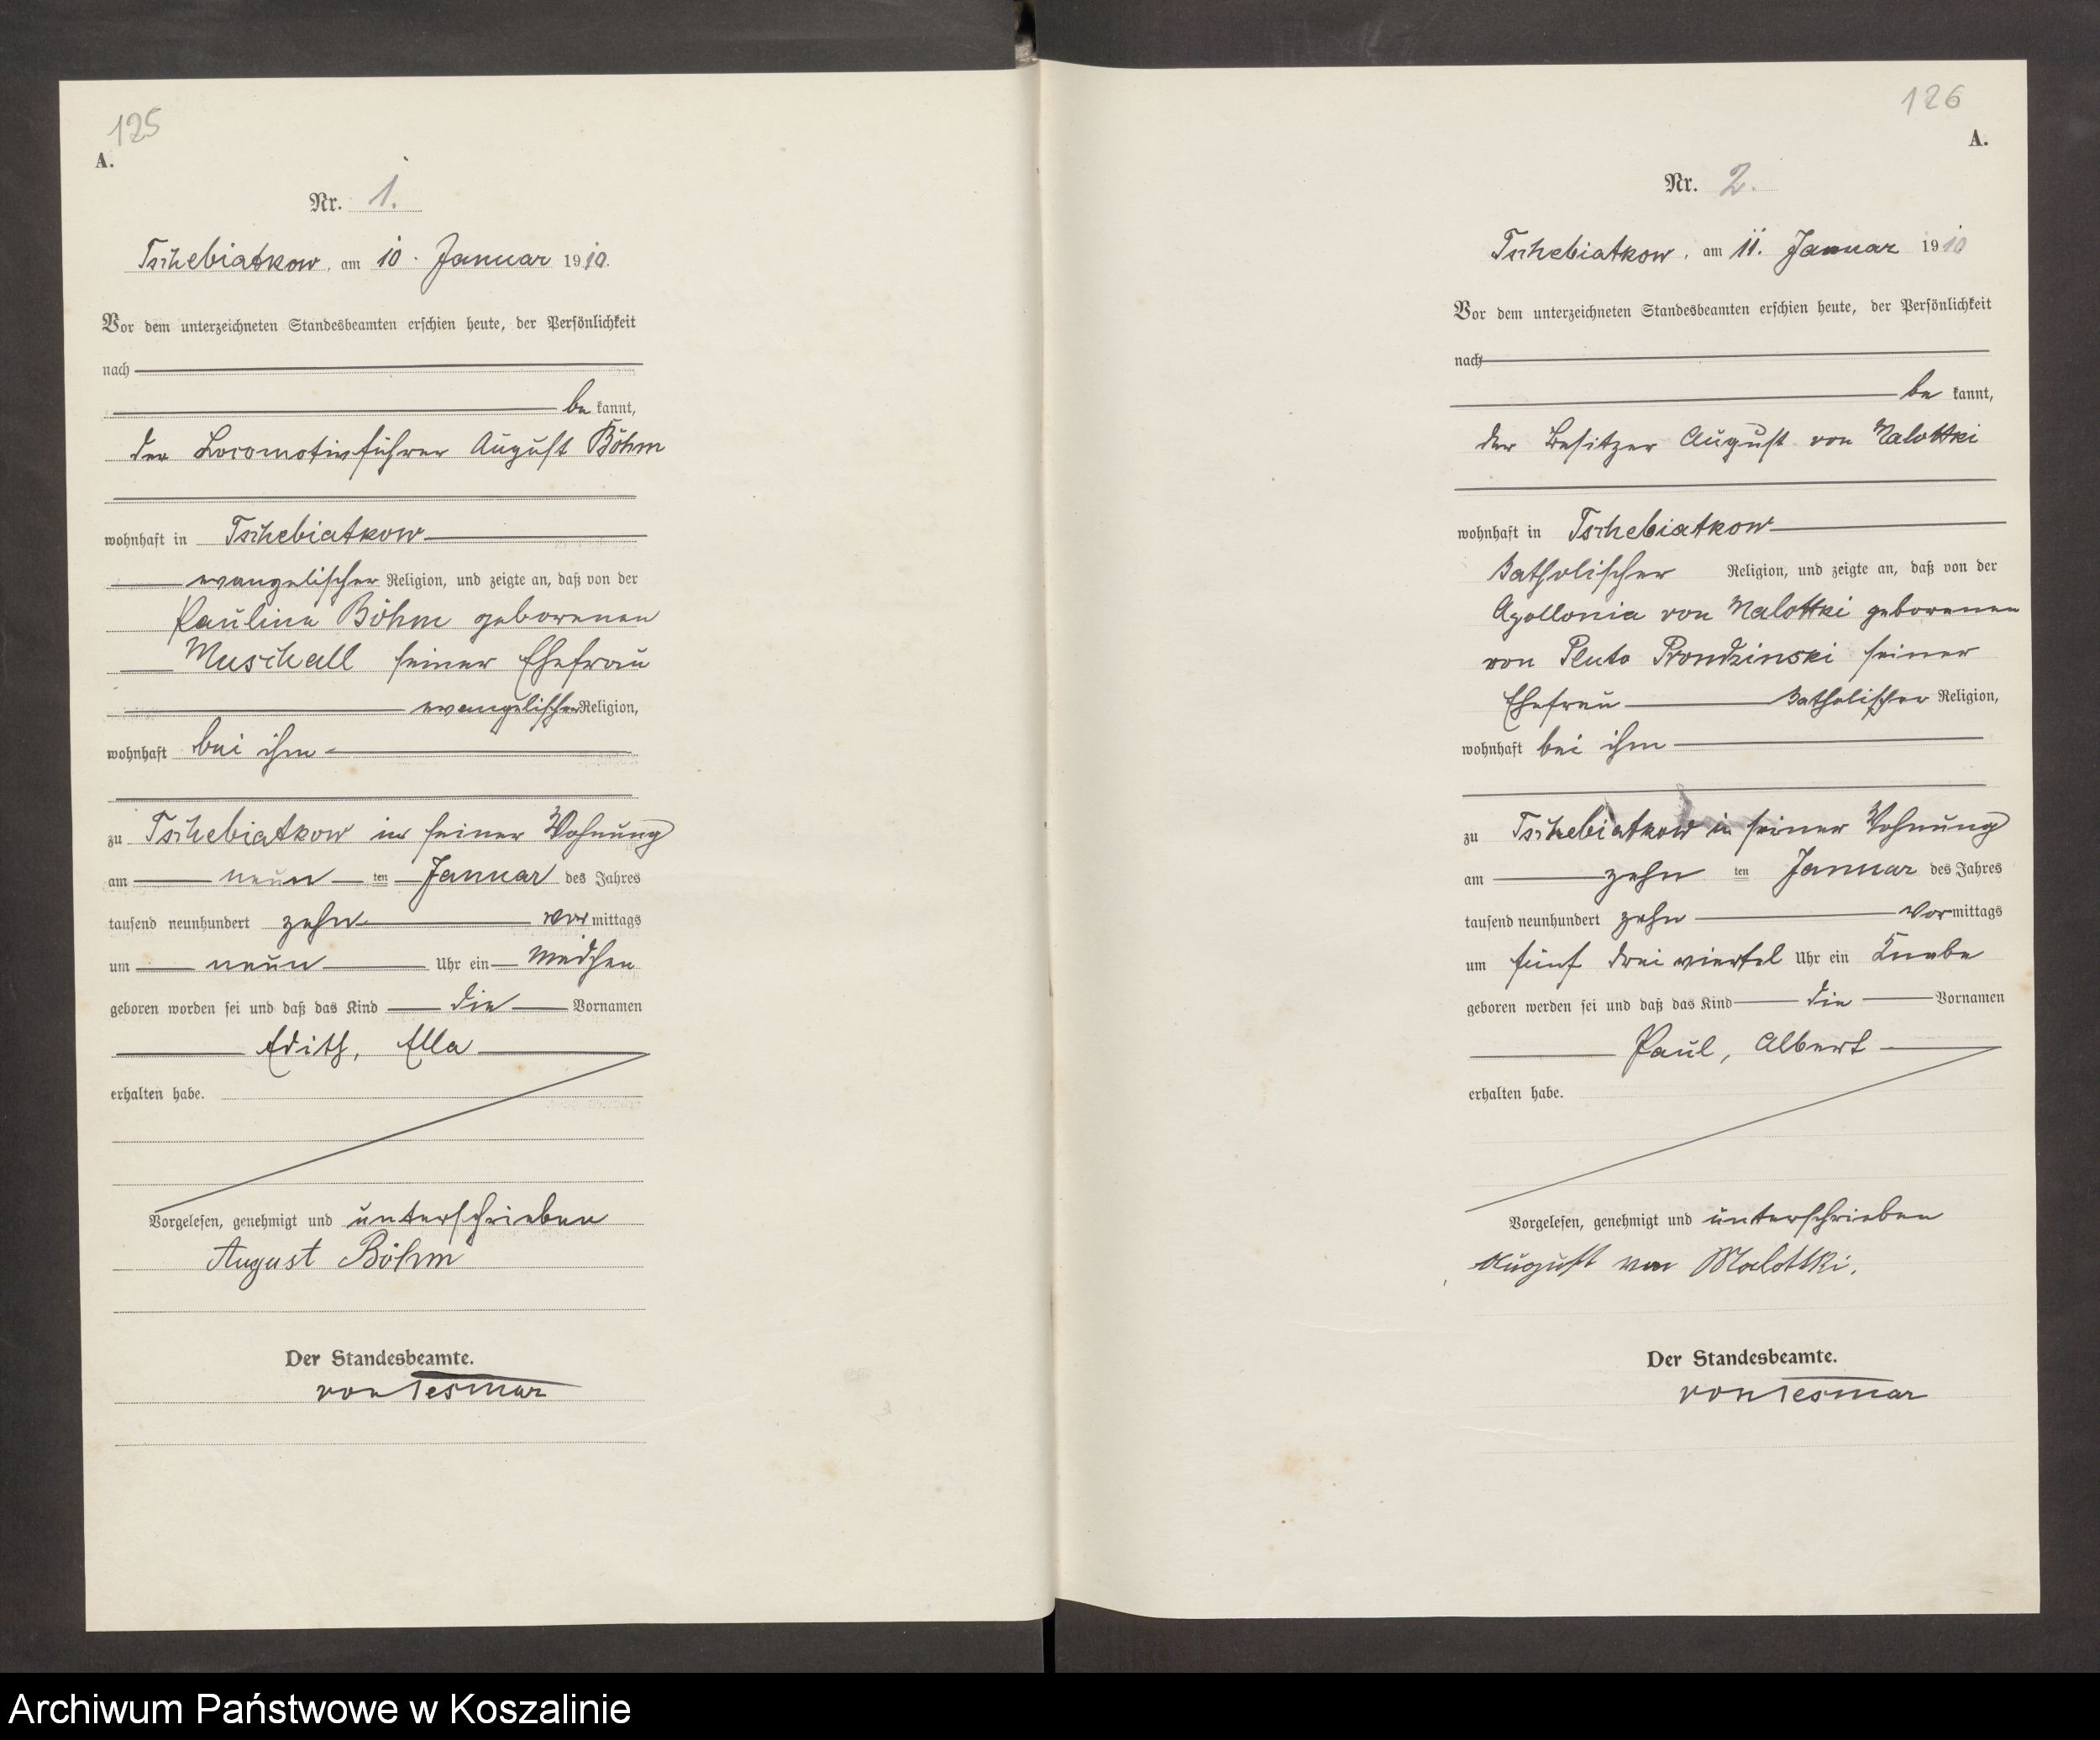 125
A.
Nr. 1.
Tschebiatkow, am 10. Januar 1910.
Vor dem unterzeichneten Standesbeamten erschien heute, der Persönlichkeit
nach
be kannt,
der Locomotivführer August Böhm
wohnhaft in Tschebiatkow
evangelischer Religion, und zeigte an, daß von der
Pauline Böhm geborenen
Muschall seiner Ehefrau
evangelischer Religion,
wohnhaft bei ihm
zu Tschebiatkow in seiner Wohnung
am neun ten Januar des Jahres
tausend neunhundert zehn vor mittags
um neun Uhr ein Mädchen
geboren worden sei und daß das Kind die Vornamen
Edith, Ella
erhalten habe.
Vorgelesen, genehmigt und unterschrieben
August Böhm
Der Standesbeamte.
von Tesmar
126
A.
Nr. 2.
Tschebiatkow, am 11. Januar 1910
Vor dem unterzeichneten Standesbeamten erschien heute, der Persönlichkeit
nach
be kannt,
der Besitzer August von Malottki
wohnhaft in Tschebiatkow
Katholischer Religion, und zeigte an, daß von der
Apollonia von Malottki geborenen
von Pluto Prondzinski seiner
Ehefrau katholischer Religion,
wohnhaft bei ihm
zu Tschebiatkow in seiner Wohnung
am zehn ten Januar des Jahres
tausend neunhundert zehn Vor mittags
um fünf drei viertel Uhr ein Knabe
geboren werden sei und daß das Kind die Vornamen
Paul, Albert
erhalten habe.
Vorgelesen, genehmigt und unterschrieben
August von Malottki.
Der Standesbeamte.
von Tesmar
Archiwum Państwowe w Koszalinie